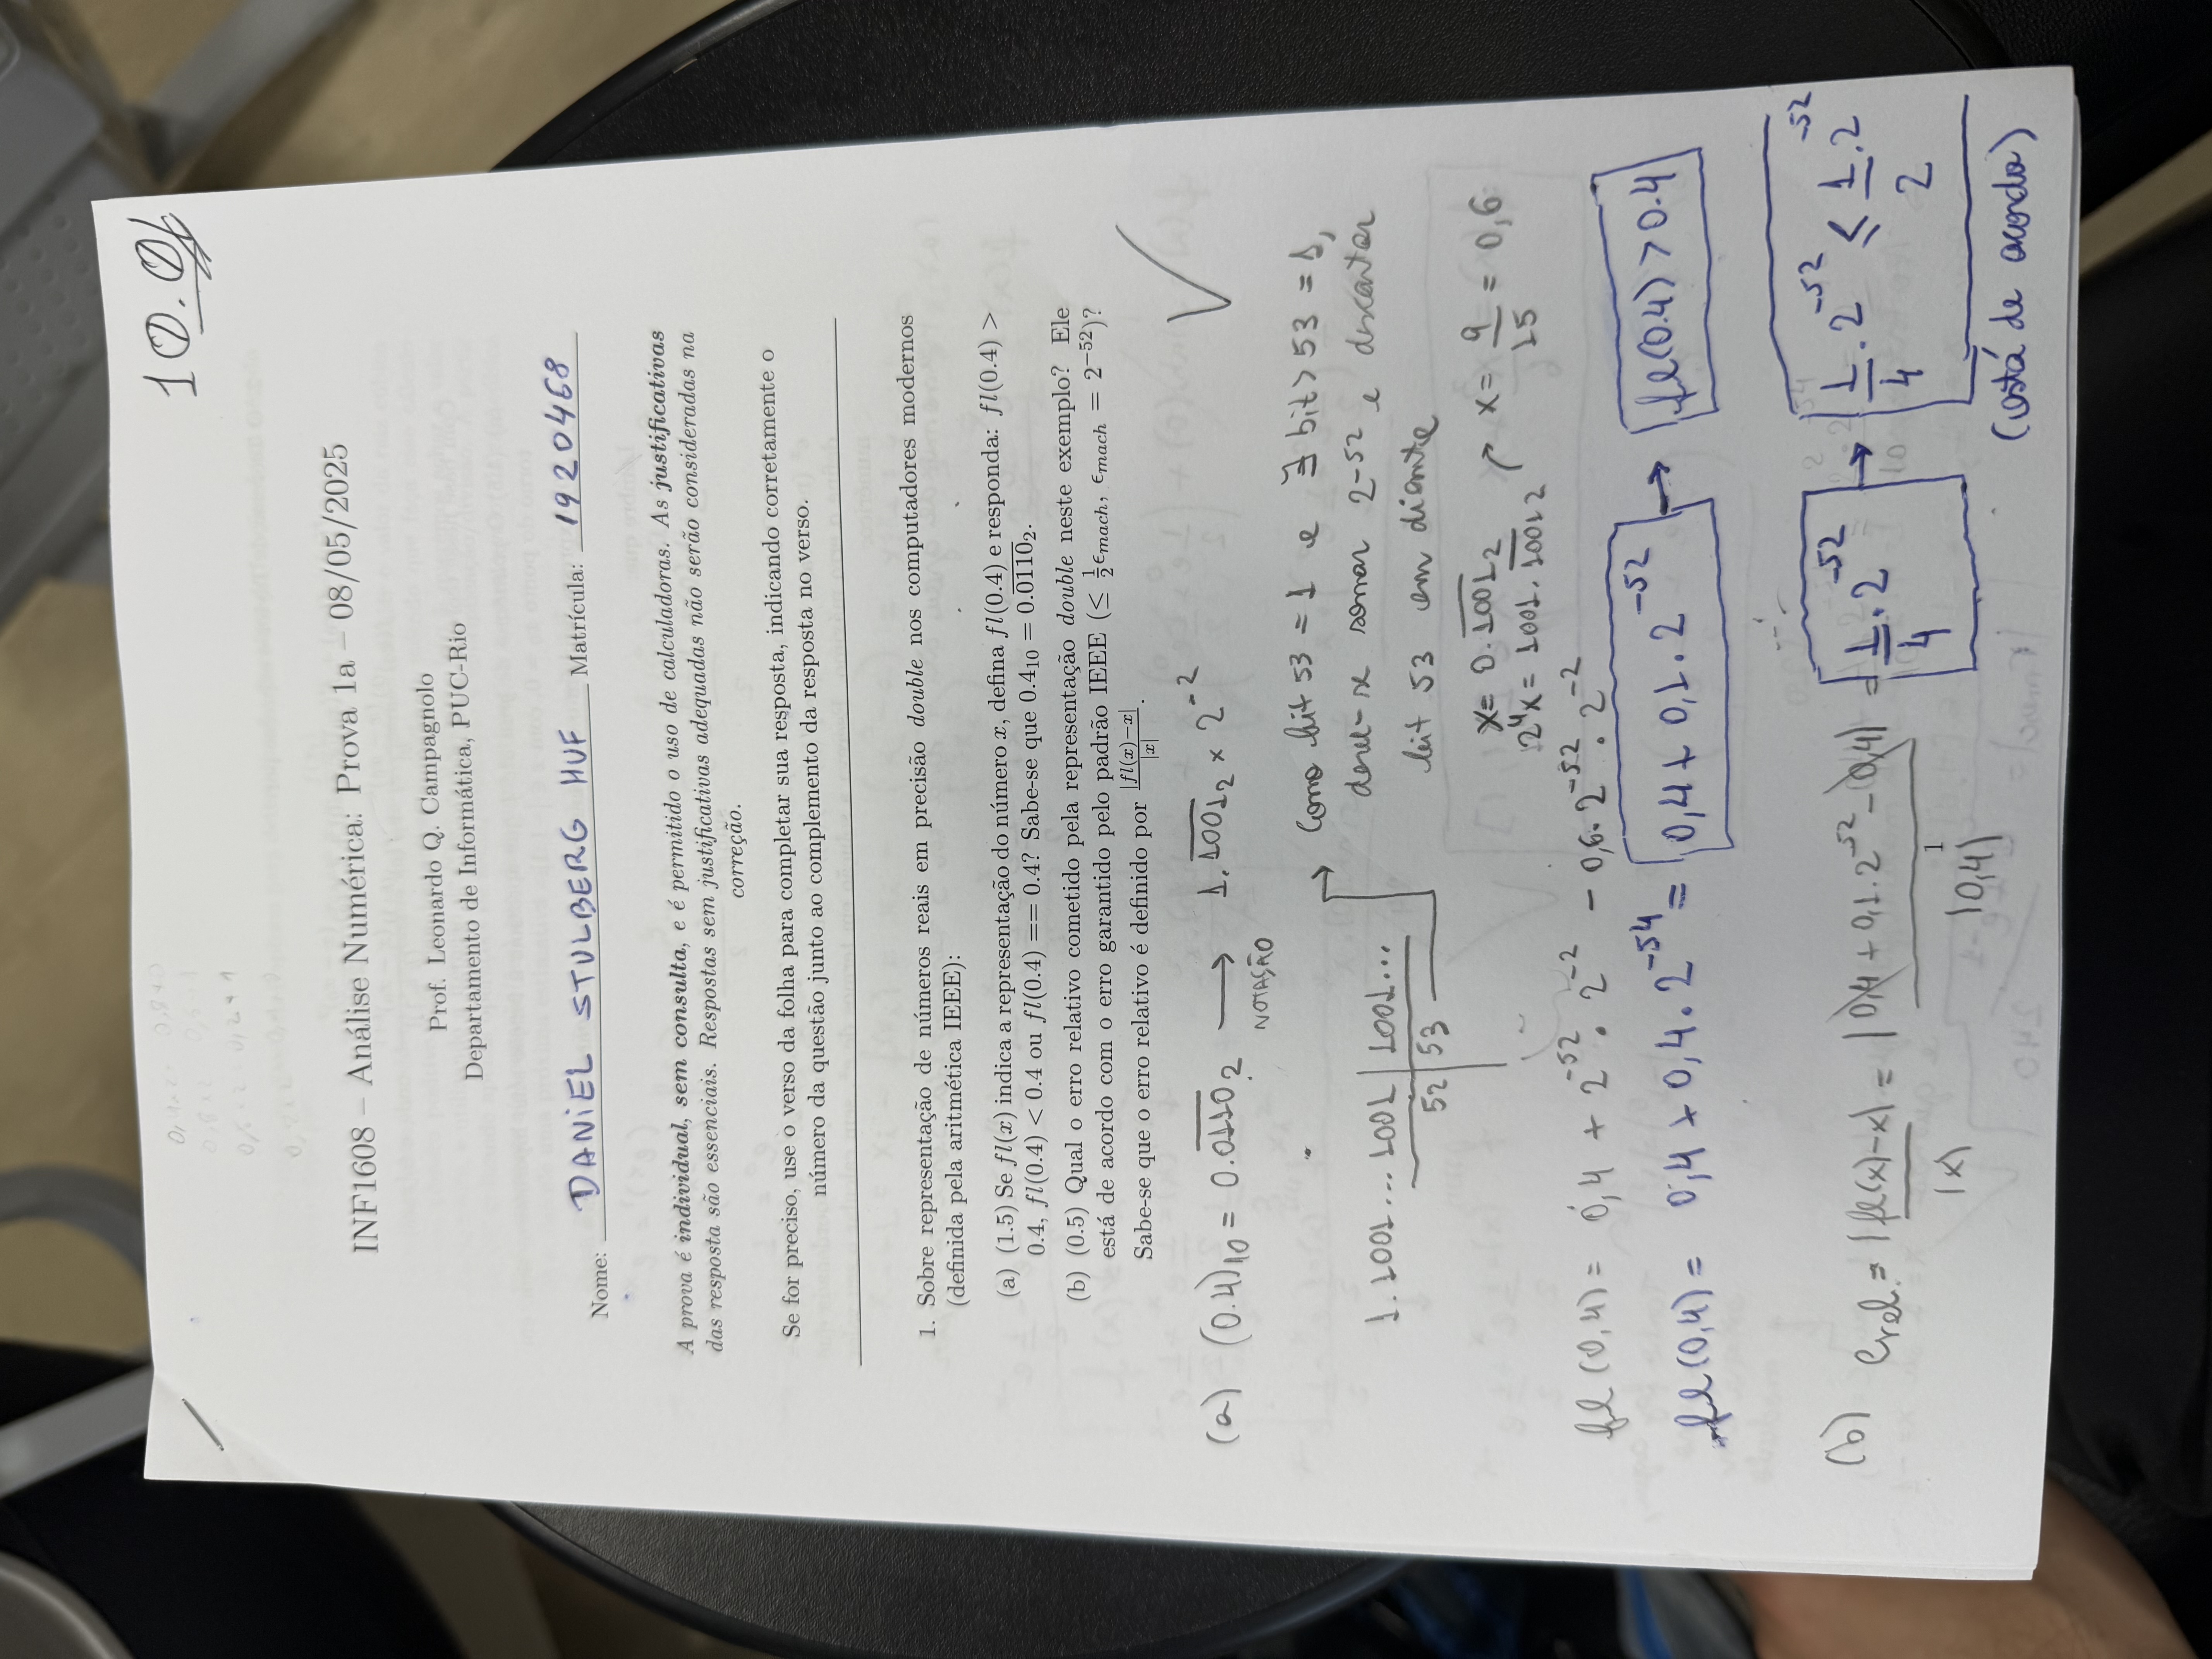 10.0
INF1608 – Análise Numérica: Prova 1a – 08/05/2025
Prof. Leonardo Q. Campagnolo
Departamento de Informática, PUC-Rio
Nome: DANIEL STULBERG HUF Matrícula: 1920468
A prova é individual, sem consulta, e é permitido o uso de calculadoras. As justificativas
das resposta são essenciais. Respostas sem justificativas adequadas não serão consideradas na
correção.
Se for preciso, use o verso da folha para completar sua resposta, indicando corretamente o
número da questão junto ao complemento da resposta no verso.
1. Sobre representação de números reais em precisão double nos computadores modernos
(definida pela aritmética IEEE):
(a) (1.5) Se fl(x) indica a representação do número x, defina fl(0.4) e responda: fl(0.4) >
0.4, fl(0.4) < 0.4 ou fl(0.4) == 0.4? Sabe-se que 0.4₁₀ = 0.0̅1̅1̅0̅₂.
(b) (0.5) Qual o erro relativo cometido pela representação double neste exemplo? Ele
está de acordo com o erro garantido pelo padrão IEEE (≤ ½ϵmach, ϵmach = 2⁻⁵²)?
Sabe-se que o erro relativo é definido por |fl(x)−x|/|x|.
(a) (0.4)₁₀ = 0.0̅1̅1̅0̅₂ → 1.1̅0̅0̅1̅₂ × 2⁻²
NOTAÇÃO
Como bit 53 = 1 e ∃ bit > 53 = 1,
deve-se somar 2-52 e descartar
bit 53 em diante
1.1001... 1001 | 1001...
52 | 53
x = 0.1̅0̅0̅1̅₂
2⁴x = 1001.1̅0̅0̅1̅₂
x = 9/15 = 0,6
fl(0,4) = 0,4 + 2⁻⁵² · 2⁻² − 0,6 · 2⁻⁵² · 2⁻²
fl(0,4) = 0,4 + 0,4 · 2⁻⁵⁴ = 0,4 + 0,1 · 2⁻⁵² → fl(0.4) > 0.4
(b) erel. = |fl(x)−x|/|x| = |0,4 + 0,1 · 2⁻⁵² − 0,4|/|0,4| = 1/4 · 2⁻⁵² → 1/4 · 2⁻⁵² ≤ 1/2 · 2⁻⁵²
(está de acordo)
1